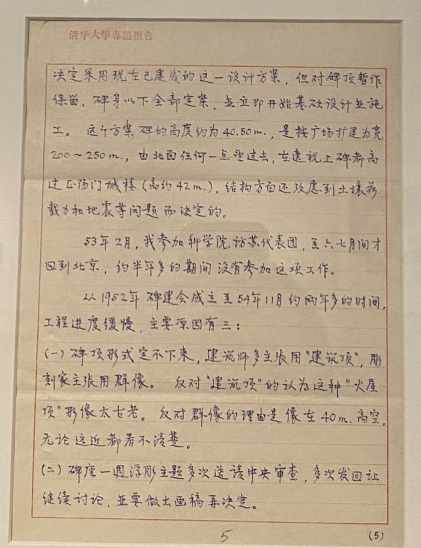 清华大学专题报告
决定采用现在已建成的这一设计方案，但对碑顶暂作
保留，碑身以下全部定案，並立即开始基础设计並施
工。这个方案碑的高度约为40.50m.，是按广场扩建为宽
200～250m.，由北面任何一点望过去，在透视上碑都高
过正阳门城楼（高约42m.），结构方面还考虑到土壤荷
载力和地震等问题而决定的。
53年2月，我参加科学院访苏代表团，至六七月间才
回到北京，约半年多的期间没有参加这项工作。
从1952年碑建会成立至54年11月约两年多的时间，
工程进度缓慢，主要原因有三：
(一)碑顶形式定不下来，建筑师多主张用"建筑顶"，彫
刻家主张用群像。反对"建筑顶"的认为这种"大屋
顶"形像太古老。反对群像的理由是像在40m.高空，
无论远近都看不清楚。
(二)碑座一週浮彫主题多次送请中央审查，多次发回让
继续讨论，並要做出画稿再决定。
5
(5)